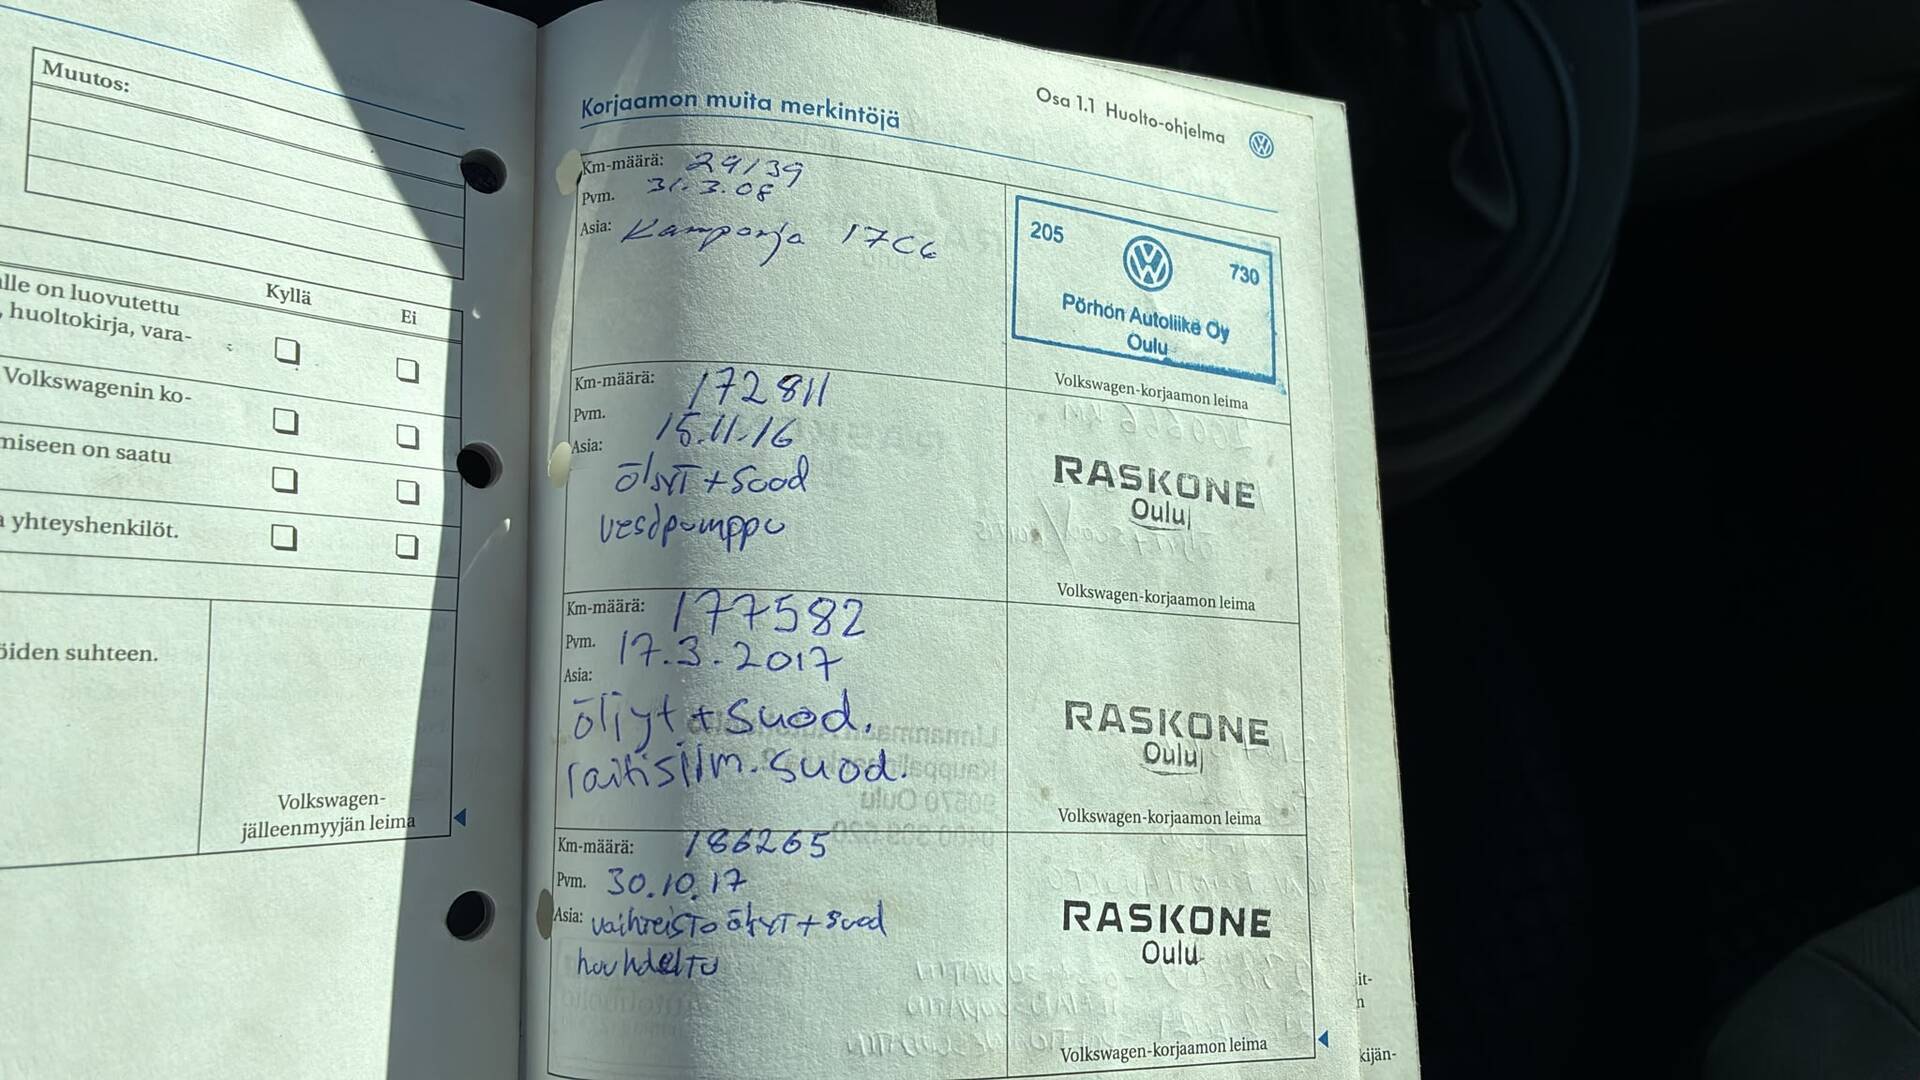 Muutos:
Kyllä
Ei
lle on luovutettu
, huoltokirja, vara-
Volkswagenin ko-
miseen on saatu
yhteyshenkilöt.
öiden suhteen.
Volkswagen-
jälleenmyyjän leima
Osa 1.1 Huolto-ohjelma
Korjaamon muita merkintöjä
Km-määrä: 29139
Pvm. 31.3.08
Asia: Kampanja 17C6
205
730
Pörhön Autoliike Oy
Oulu
Volkswagen-korjaamon leima
Km-määrä: 172811
Pvm. 15.11.16
Asia:
öljyt + suod
vesipumppu
RASKONE
Oulu
Volkswagen-korjaamon leima
Km-määrä: 177582
Pvm. 17.3.2017
Asia:
öljyt + suod.
raitisilm. suod.
RASKONE
Oulu
Volkswagen-korjaamon leima
Km-määrä: 186265
Pvm. 30.10.17
Asia: vaihteisto öljyt + suod
huuhdeltu
RASKONE
Oulu
Volkswagen-korjaamon leima
it-
n
kijän-